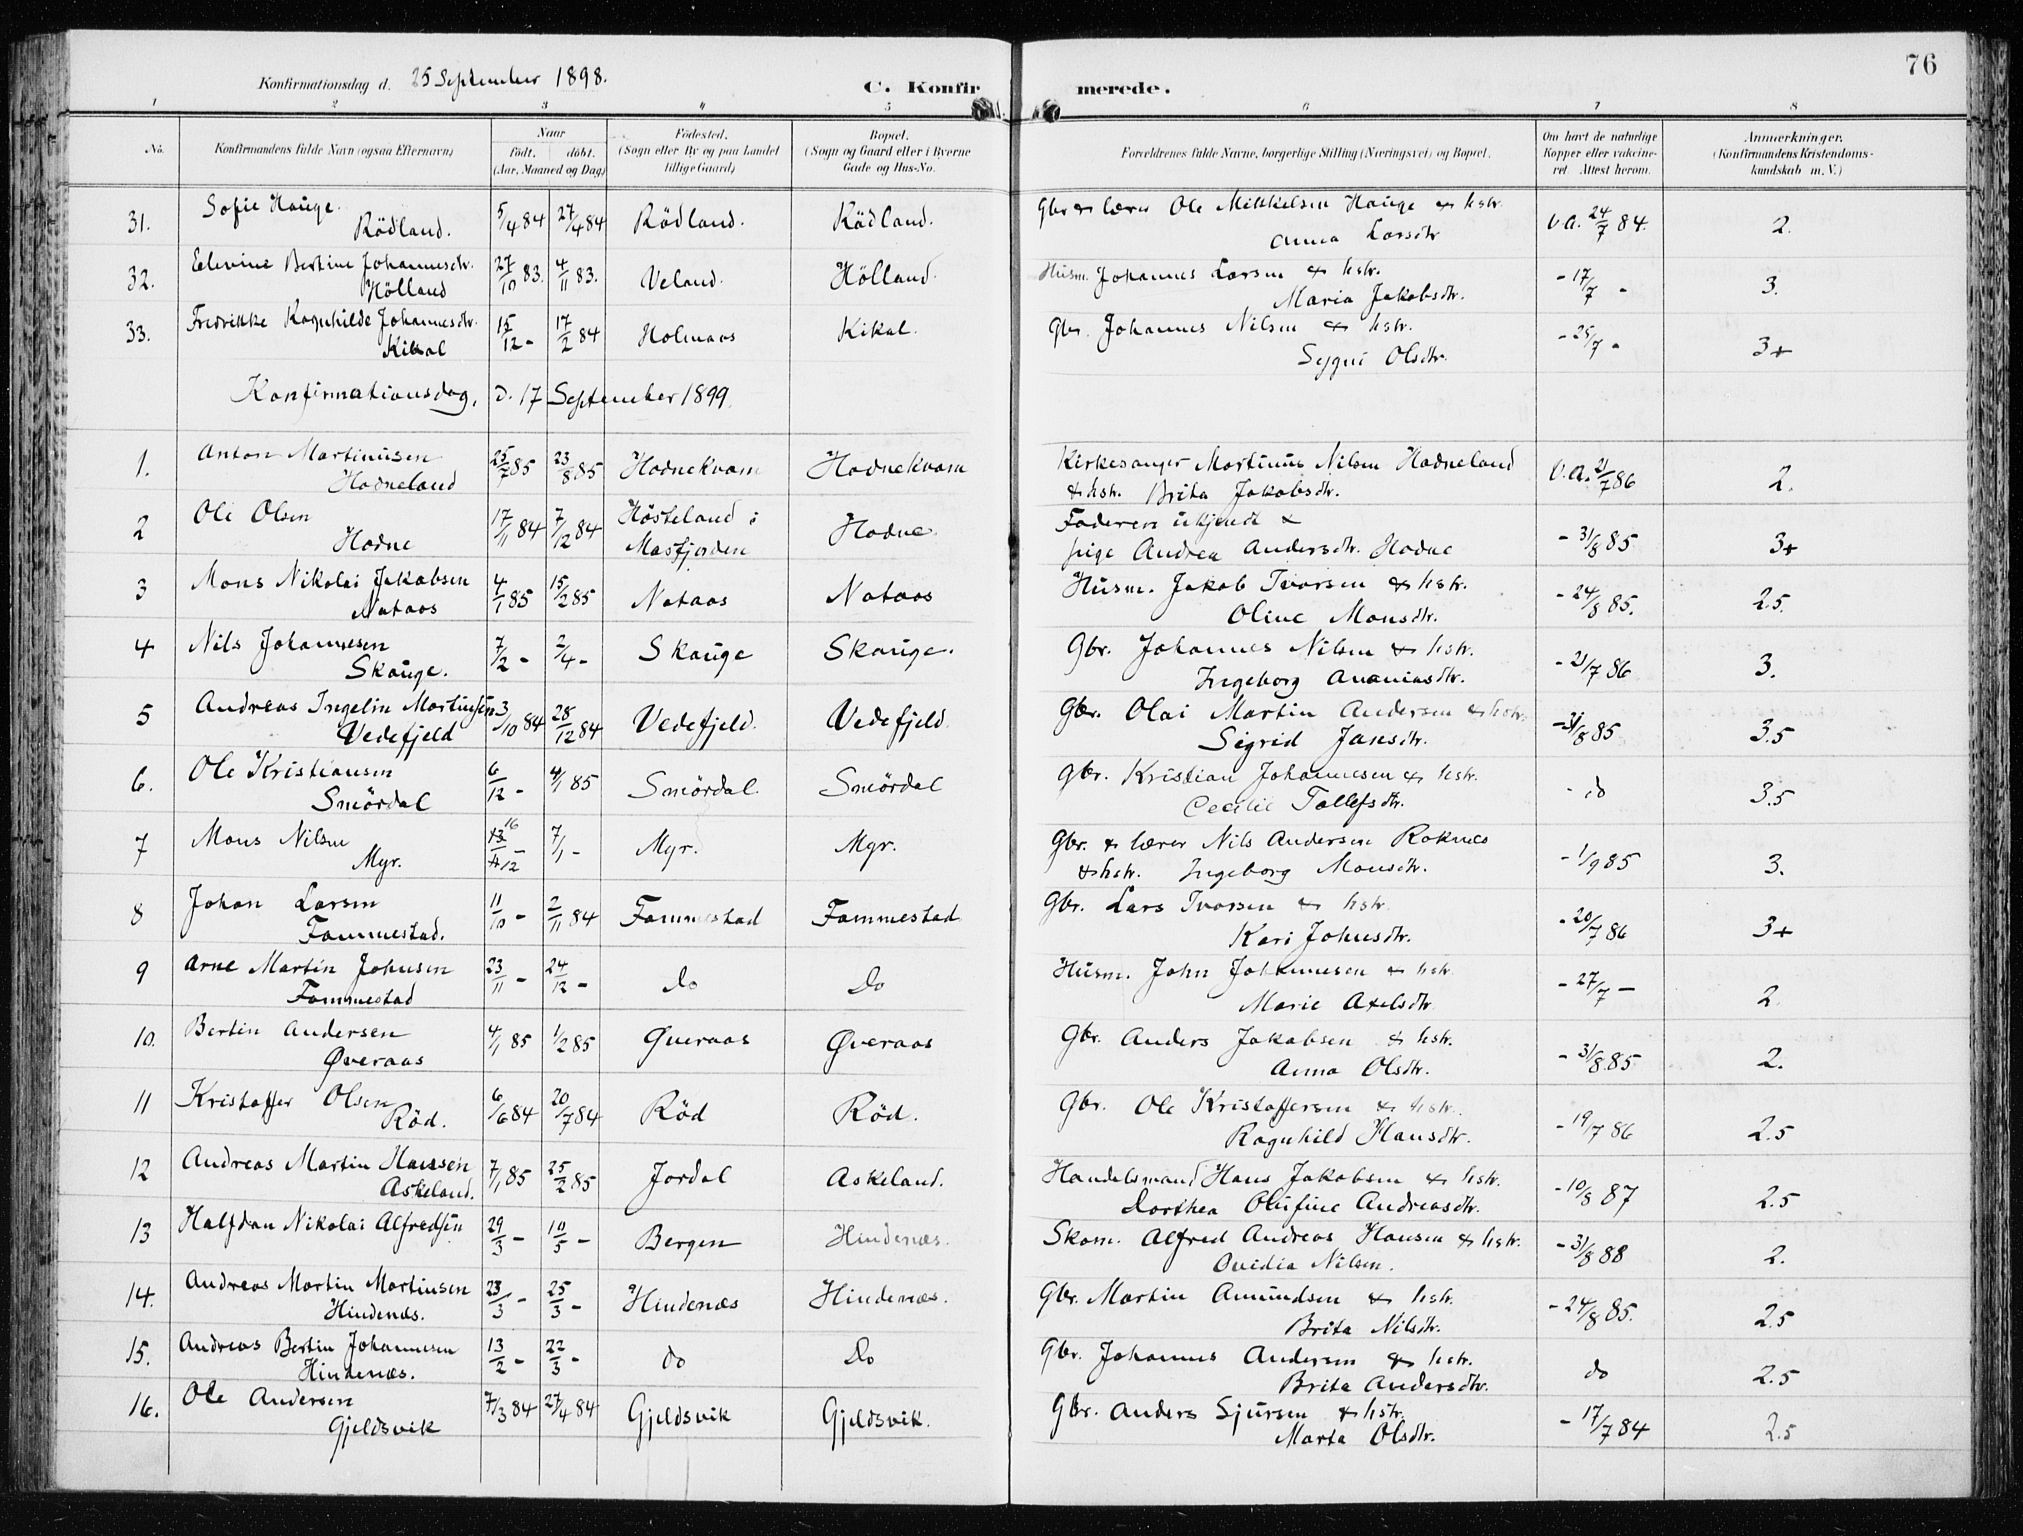 76
Konfirmationsdag d. 25 September 1898.
C. Konfirmerede.
1 2 3 4 5 6 7 8
No.
Konfirmandens fulde Navn (ogsaa Efternavn)
Naar
født. døbt.
(Aar, Maaned og Dag)
Fødested.
(Sogn eller By og paa Landet
tillige Gaard)
Bopæl.
(Sogn og Gaard eller i Byerne
Gade og Hus-No.
Forældrenes fulde Navne, borgerlige Stilling (Næringsvei) og Bopæl.
Om havt de naturlige
Kopper eller vakcine-
ret. Attest herom.
Anmærkninger.
(Konfirmandens Kristendoms-
kundskab m. V.)
31. Sofie Hauge. 5/4 84 27/4 84 Rödland. Rödland. Gbr & lærer Ole Mikkelsen Hauge & hstr. v.a. 24/7 84. 2.
Rödland. Anna Larsdtr
32. Elevine Bertine Johannesdtr. 27/10 83. 4/11 83. Veland. Hölland. Husm. Johannes Larsen & hstr. - 17/7 - 3.
Hölland Maria Jakobsdtr.
33. Fredrikke Ragnhilde Johannesdtr. 15/12 - 17/2 84 Holmaas Kikal. Gbr. Johannes Nilsen & hstr. - 25/7 - 3+
Kikal Sygni Olsdtr.
Konfirmationsdag, d. 17 September 1899.
1. Anton Martinusen 25/7 85 23/8 85 Hodnekvam Hodnekvam Kirkesanger Martinus Nilsen Hodneland v.a. 21/7 86 2.
Hodneland & hstr. Brita Jakobsdtr.
2 Ole Olsen 17/11 84 7/12 84 Hösteland i Hodne. Faderen ukjendt & - 31/8 85 3+
Hodne Masfjorden pige Andrea Andersdtr. Hodne
3 Mons Nikolai Jakobsen 4/1 85 15/2 85 Nataas Nataas Husm. Jakob Ivarsen & hstr. - 24/8 85. 2.5.
Nataas Oline Monsdtr.
4 Nils Johannesen 7/2 - 2/4 - Skauge Skauge. Gbr. Johannes Nilsen & hstr. - 21/7 86 3.
Skauge. Ingeborg Ananiasdtr.
5 Andreas Ingelin Martinsen 3/10 84 28/12 84 Vedefjeld. Vedefjeld. Gbr. Olai Martin Andersen & hstr. - 31/8 85 3.5
Vedefjeld Sigrid Jansdtr.
6. Ole Kristiansen 6/12 - 4/1 85 Smördal. Smördal Gbr. Kristian Johannesen & hstr. - do 3.5
Smördal Cecilie Tollefsdtr.
7 Mons Nilsen 16/12 - 7/1 - Myr. Myr. Gbr. & lærer Nils Andersen Roknes - 1/9 85 3.
Myr. & hstr. Ingeborg Monsdtr.
8 Johan Larsen 11/10 - 2/11 84 Fammestad Fammestad Gbr. Lars Ivarsen & hstr. - 20/7 86 3+
Fammestad. Kari Johnsdtr.
9 Arne Martin Johnsen 23/11 - 24/12 - do Do Husm. John Johannesen & hstr. - 27/7 - 2.
Fammestad Marie Axelsdtr.
10. Bertin Andersen 4/1 85 1/2 85 Øveraas Øveraas Gbr. Anders Jakobsen & hstr. - 31/8 85 2.
Øveraas Anna Olsdtr.
11 Kristoffer Olsen 6/6 84 20/7 84 Röd Röd. Gbr. Ole Kristoffersen & hstr. - 19/7 86 2.5
Röd. Ragnhild Hansdtr.
12 Andreas Martin Hanssen 7/1 85 25/2 85 Jordal Askeland. Handelsmand Hans Jakobsen & hstr. - 10/8 87 2.5
Askeland. Dorthea Olufine Andreasdtr.
13 Halfdan Nikolai Alfredsen 29/3 - 10/5 - Bergen Hindenæs. Skom. Alfred Andreas Hansen & hstr. - 31/8 88 2.
Ovidia Nilsen.
14. Andreas Martin Martinsen 23/3 - 25/3 - Hindenæs Hindenæs. Gbr. Martin Amundsen & hstr. - 24/8 85. 2.5
Hindenæs. Brita Nilsdtr.
15. Andreas Bertin Johannesen 13/2 - 22/3 - do Do Gbr. Johannes Andersen & hstr. do 2.5
Hindenæs. Brita Andersdtr.
16. Ole Andersen 7/3 84 27/4 84 Gjeldsvik Gjeldsvik. Gbr. Anders Sjursen & hstr. - 17/7 84 2.5
Gjeldsvik Marta Olsdtr.